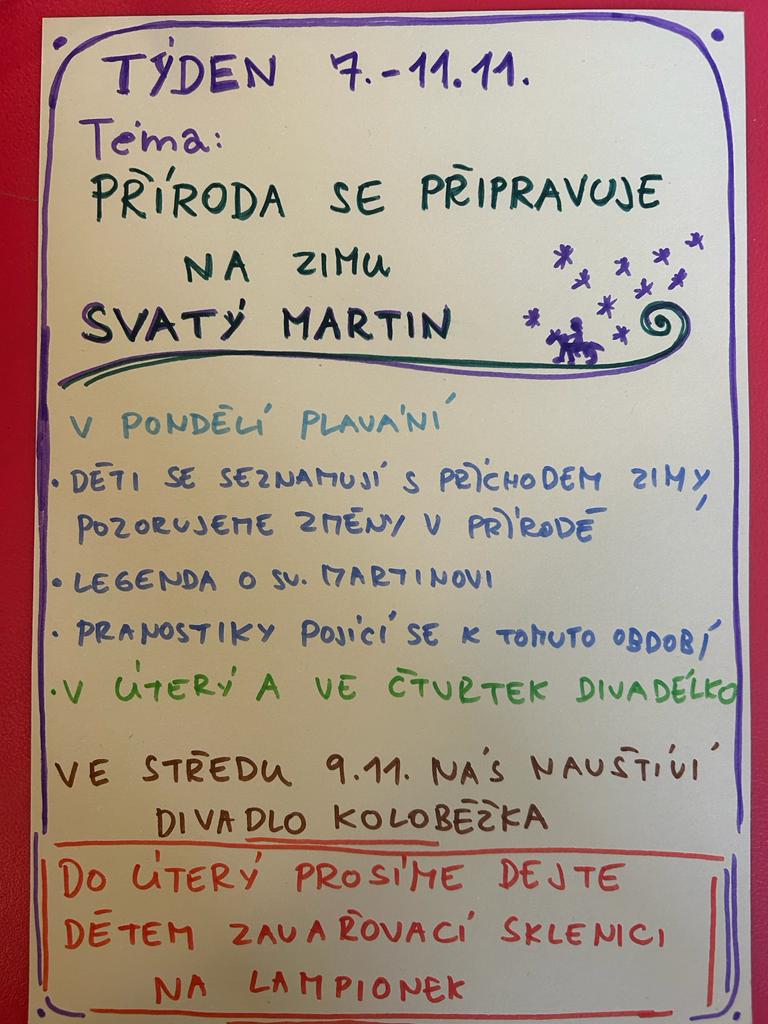 TÝDEN 7.-11.11.
Téma:
PŘÍRODA SE PŘIPRAVUJE
NA ZIMU
SVATÝ MARTIN
V PONDĚLÍ PLAVÁNÍ
• DĚTI SE SEZNAMUJÍ S PŘÍCHODEM ZIMY,
POZORUJEME ZMĚNY V PŘÍRODĚ
• LEGENDA O SV. MARTINOVI
• PRANOSTIKY POJÍCÍ SE K TOMUTO OBDOBÍ
• V ÚTERÝ A VE ČTVRTEK DIVADÉLKO
VE STŘEDU 9.11. NÁS NAVŠTÍVÍ
DIVADLO KOLOBĚŽKA
DO ÚTERÝ PROSÍME DEJTE
DĚTEM ZAVAŘOVACÍ SKLENICI
NA LAMPIONEK